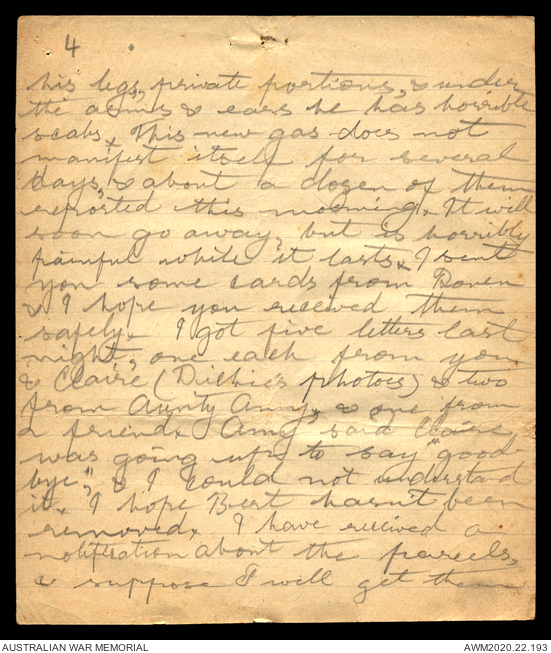 4
his legs, private portions, & under
the arms & ears he has horrible
scabs x This new gas does not
manifest itself for several
days, & about a dozen of them
reported this morning x It will
soon go away, but is horribly
painful while it lasts x I sent
you some cards from
& I hope you received them
safely x I got five letters last
night, one each from you
& Claire ( photoes) & two
from Aunty Amy, & one from
a friend x Amy said Claire
was going up to say "good-
bye", & I could not understand
it x I hope Bert hasn't been
removed x I have received a
notification about the parcels,
& suppose I will get them
AUSTRALIAN WAR MEMORIAL
AWM2020.22.193